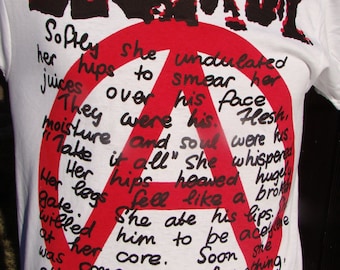 Softly she undulated
her hips to smear her
juices over his face
They were his. Flesh,
moisture and soul were his
"Take it all" She whispered
Her hips heaved hugely
Her legs fell like a broken
gate. She ate his lips.
willed him to be
at her core. Soon she
was